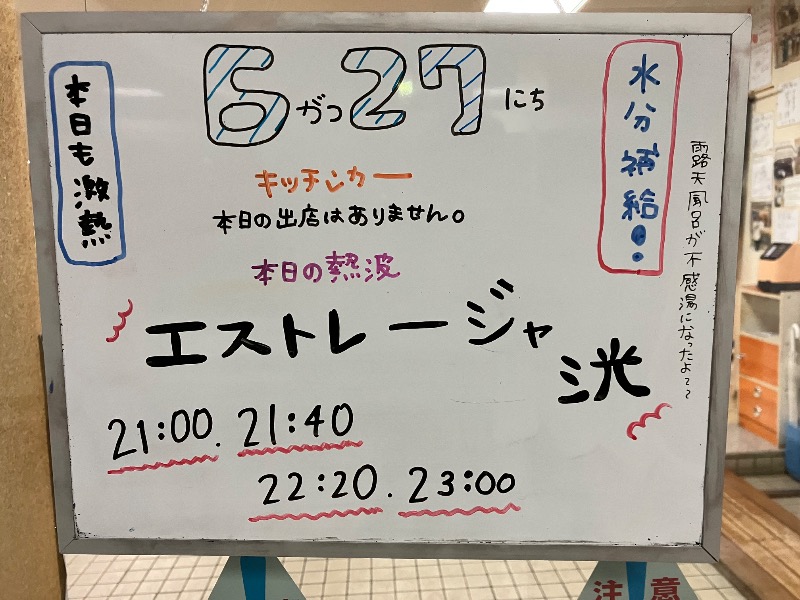 6がつ27にち
本日も激熱
水分補給!!
キッチンカー
本日の出店はありません。
本日の熱波
エストレージャ
洸
21:00. 21:40
22:20. 23:00
露天風呂が不感湯になったよ〜〜
注意